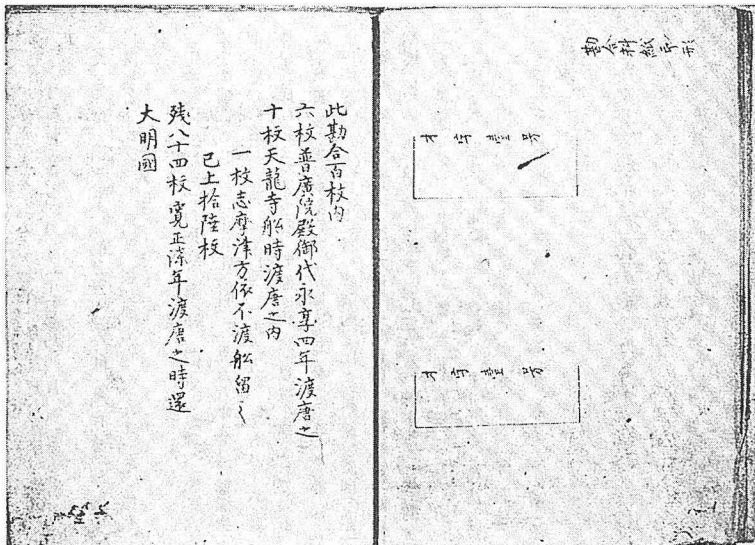 勘合料紙印形
本字壹号
本字壹号
此勘合百枚内
六枚普廣院殿御代永享四年渡唐之
十枚天龍寺舩時渡唐之内
一枚志摩津方依不渡舩留之
已上拾陸枚
残八十四枚寛正陸年渡唐之時還
大明國